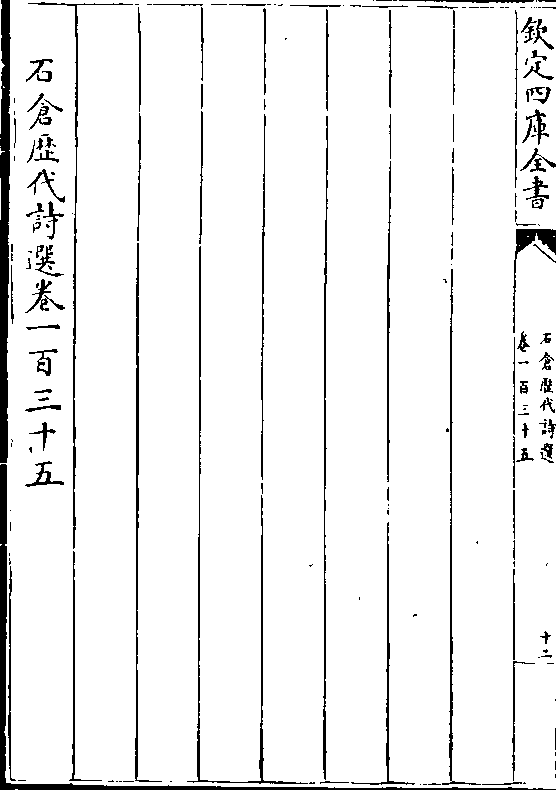 欽定四庫全書
石倉歷代詩選
卷一百三十五
十二
石倉歴代詩選卷一百三十五